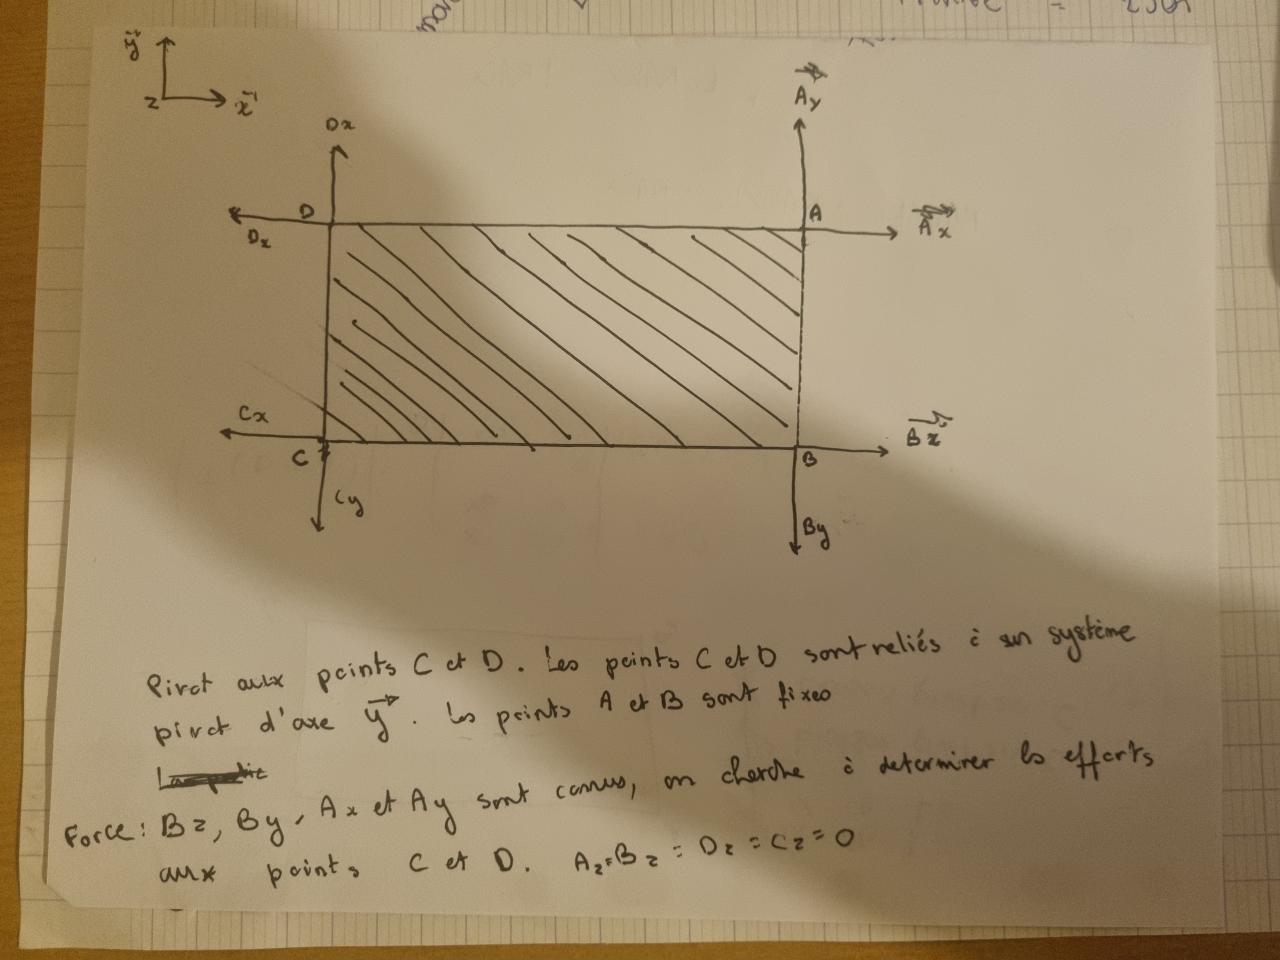 y
z x
Dx
Ay
D
A
Dx
Ax
Cx
Bx
C
B
Cy
By
Pivot aux points C et D. Les points C et D sont reliés à un système
pivot d'axe y. Les points A et B sont fixes
Force: Bz, By, Ax et Ay sont connus, on cherche à determiner les efforts
aux points C et D. Az=Bz=Dz=Cz=0